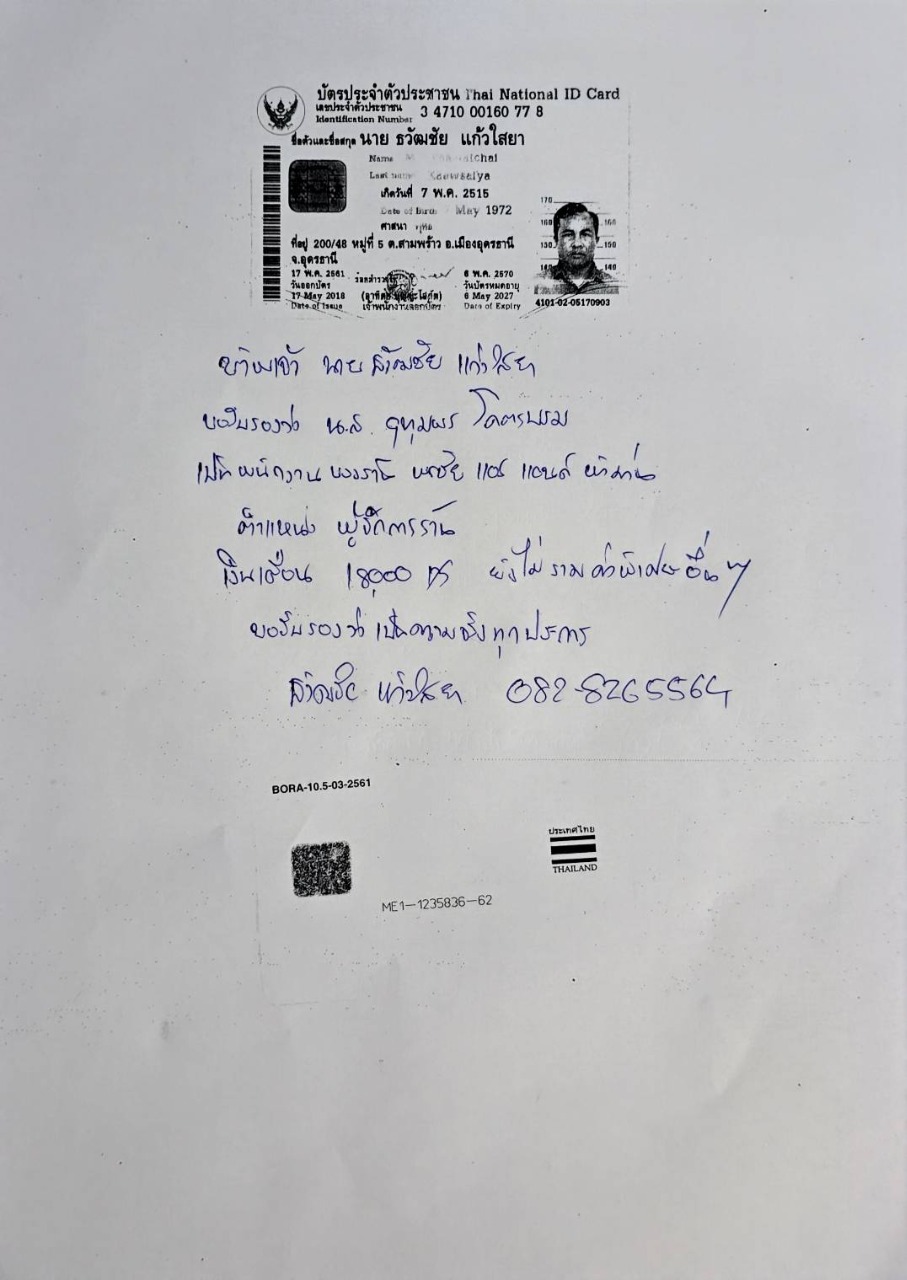 บัตรประจำตัวประชาชน Thai National ID Card
เลขประจำตัวประชาชน
Identification Number 3 4710 00160 77 8
ชื่อตัวและชื่อสกุล นาย ธวัฒชัย แก้วใสยา
Name
Last name Kaewsaiya
เกิดวันที่ 7 พ.ค. 2515
Date of Birth May 1972
ศาสนา พุทธ
ที่อยู่ 200/48 หมู่ที่ 5 ต.สามพร้าว อ.เมืองอุดรธานี
จ.อุดรธานี
17 พ.ค. 2561
วันออกบัตร
17 May 2018
Date of Issue
เจ้าพนักงานออกบัตร
6 พ.ค. 2570
วันบัตรหมดอายุ
6 May 2027
Date of Expiry
170
160 160
150 150
140 140
4101-02-05170903
ข้าพเจ้า นาย ธวัฒชัย แก้วใสยา
ขอรับรองว่า น.ส. โคตรพรม
เป็นพนักงาน
ตำแหน่ง ผู้จัดการร้าน
เงินเดือน 18,000 บาท ยังไม่รวมค่าพิเศษอื่นๆ
ขอรับรองว่าเป็นความจริงทุกประการ
ธวัฒชัย แก้วใสยา 082-8265564
BORA-10.5-03-2561
ประเทศไทย
THAILAND
ME1-1235836-62